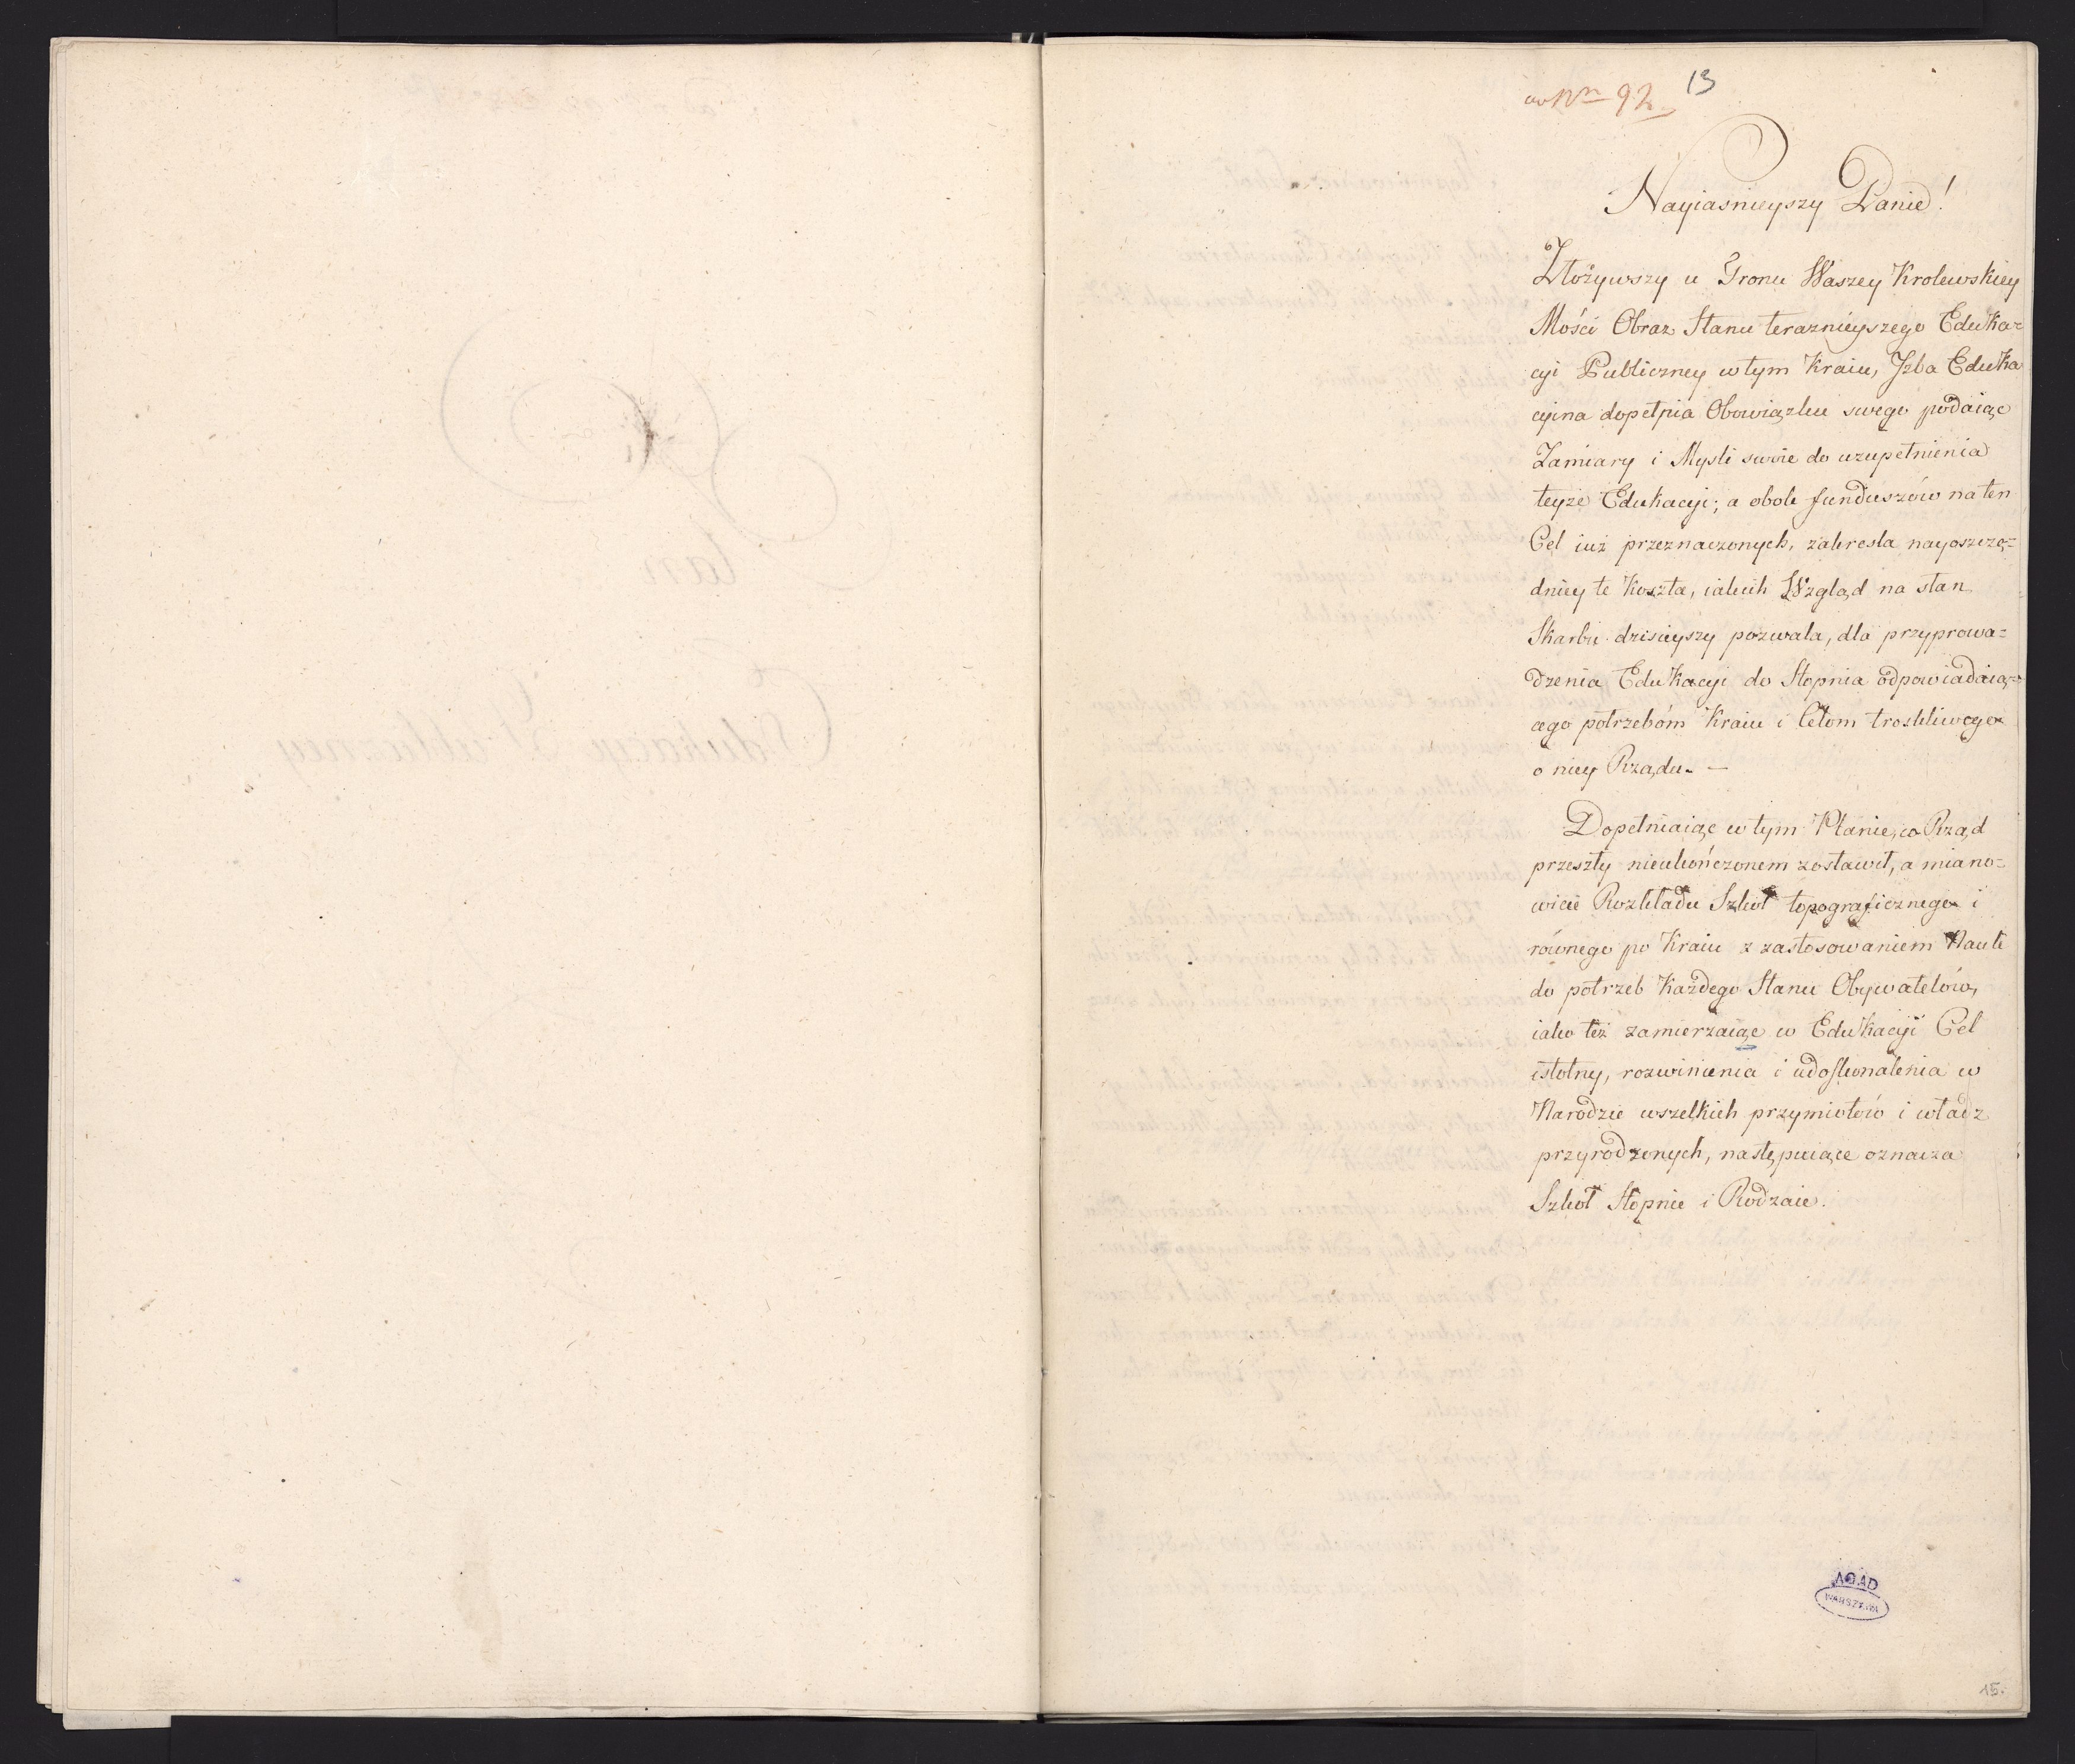 ad Nrm 92
13
Nayiasnieyszy Panie!
Złożywszy u Tronu Waszey Krolewskiey
Mości Obraz Stanu teraznieyszego Eduka=
cyi Publiczney w tym Kraiu, Jzba Eduka
cyina dopełnia Obowiązku swego podaiąc
Zamiary i Mysli swoie do uzupełnienia
teyże Edukacyi; a obok funduszów na ten
Cel iuż przeznaczonych, zakresla nayoszczę=
dniey te Koszta, iakich Wzgląd na stan
Skarbu dzisieyszy pozwala, dla przyprowa=
dzenia Edukacyi do Stopnia odpowiadaią=
cego potrzebóm Kraiu i Celom troskliwego
o niey Rządu. —
Dopełniaiąc w tym Planie, co Rząd
przeszły nieukończonem zostawił, a miano=
wicie Rozkładu Szkół topograficznego i
równego po Kraiu z zastosowaniem Nauk
do potrzeb Każdego Stanu Obywatelów,
iako też zamierzaiąc w Edukacyi Cel
istotny, rozwinienia i udoskonalenia w
Narodzie wszelkich przymiotów i władz
przyrodzonych, następuiące oznacza
Szkół Stopnie i Rodzaie.
AGAD
WARSZAWA
15.